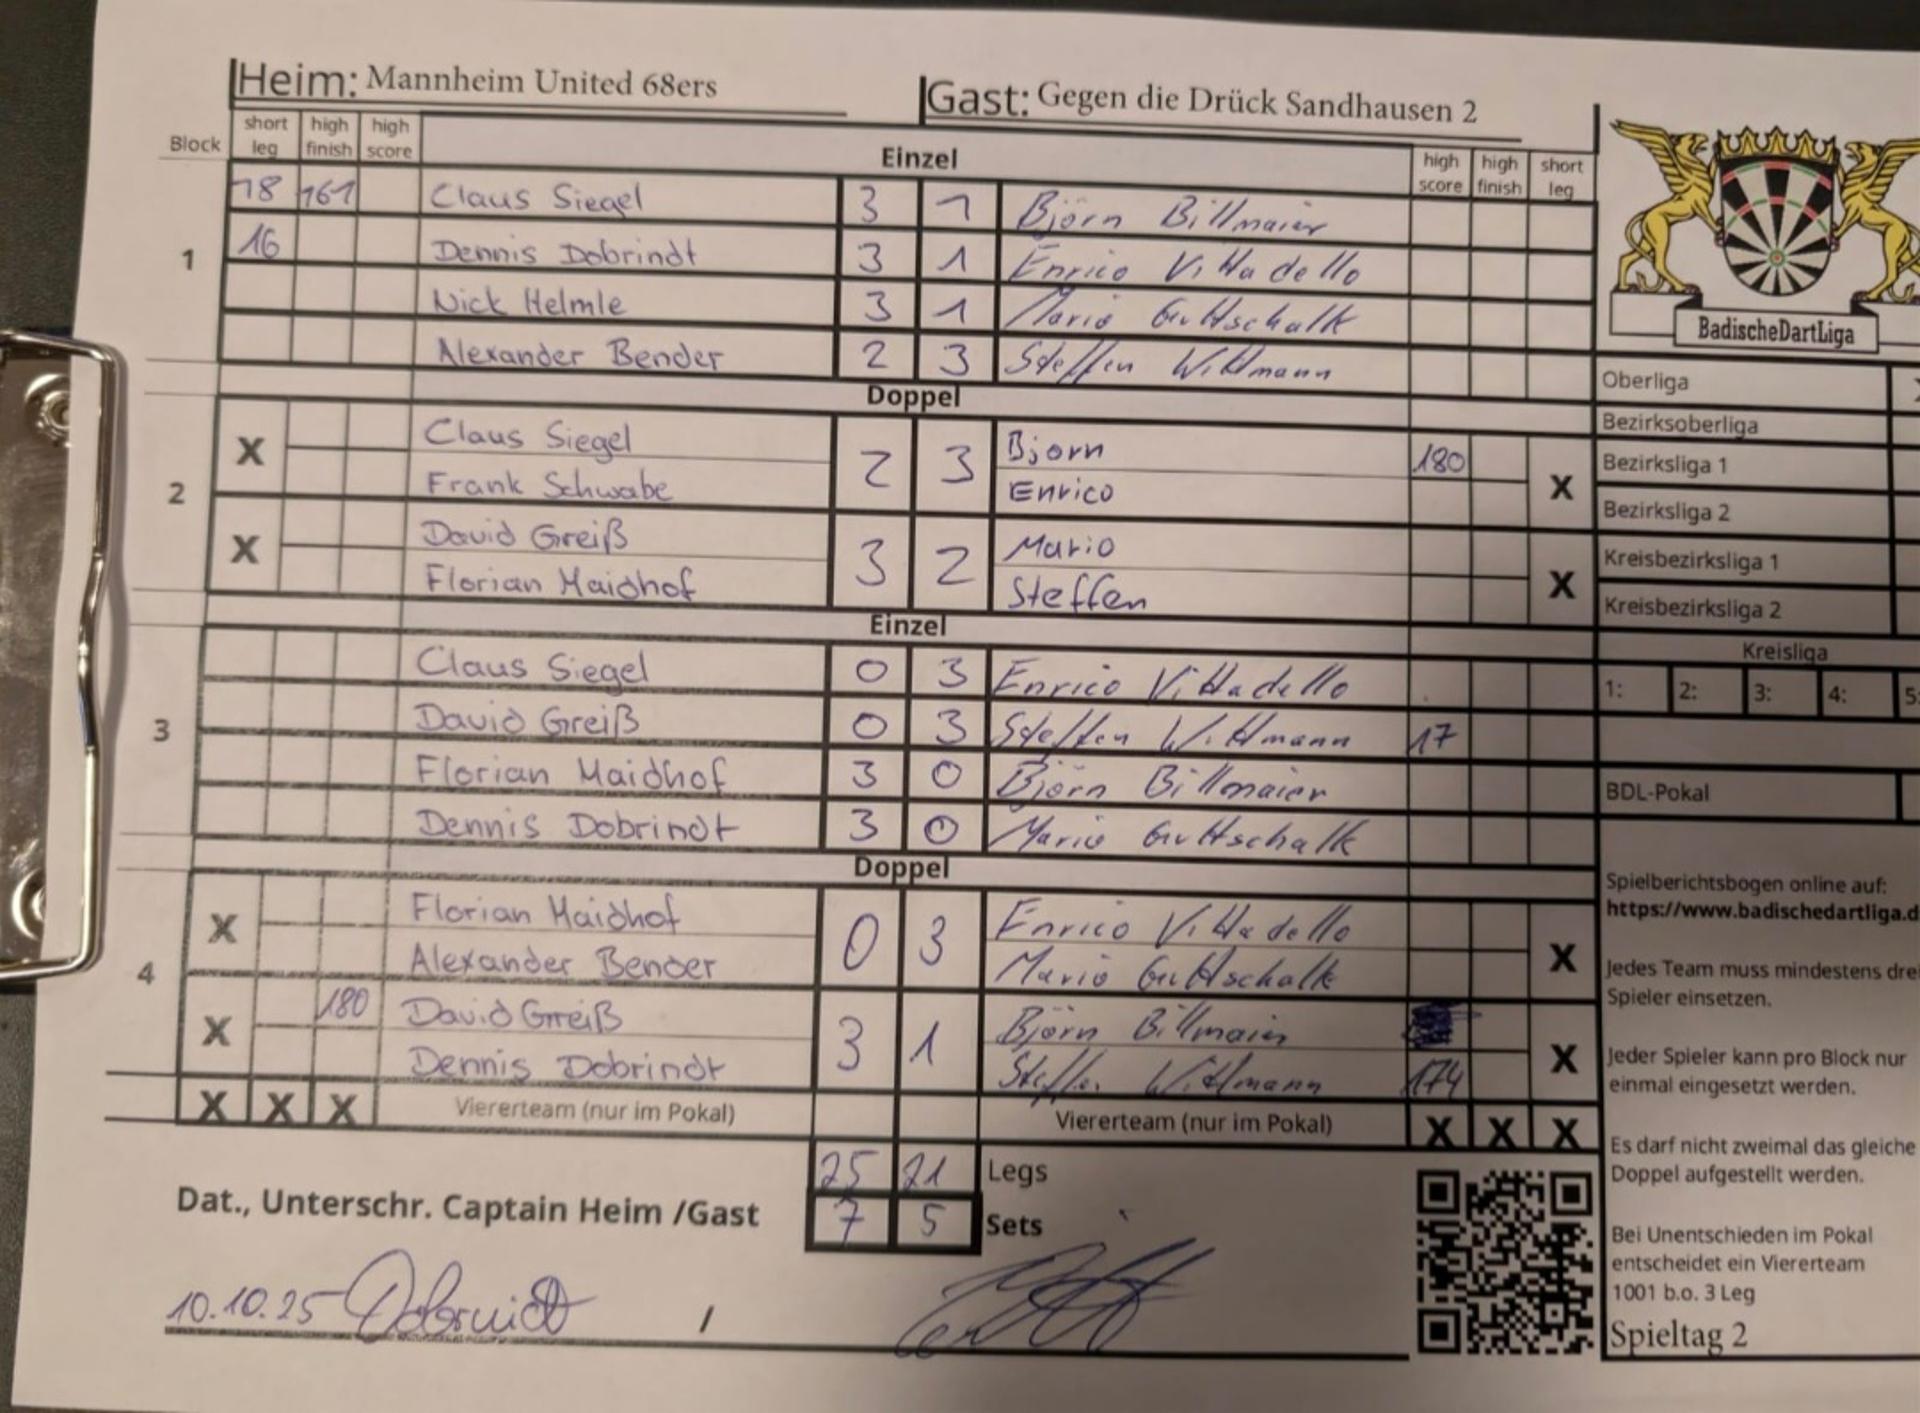 Heim: Mannheim United 68ers Gast: Gegen die Drück Sandhausen 2
Block short leg high finish high score Einzel high score high finish short leg
1
18 161 Claus Siegel 3 1 Björn Billmaier
16 Dennis Dobrindt 3 1 Enrico Vittadello
Nick Helmle 3 1 Mario Guttschalk
Alexander Bender 2 3 Steffen Wittmann
Doppel
2
X Claus Siegel 2 3 Bjorn 180 X
Frank Schwabe Enrico
X David Greiß 3 2 Mario X
Florian Maidhof Steffen
Einzel
3
Claus Siegel 0 3 Enrico Vittadello
David Greiß 0 3 Steffen Wittmann 17
Florian Maidhof 3 0 Björn Billmaier
Dennis Dobrindt 3 0 Mario Guttschalk
Doppel
4
X Florian Maidhof 0 3 Enrico Vittadello X
Alexander Bender Mario Guttschalk
X 180 David Greiß 3 1 Björn Billmaier X
Dennis Dobrindt Steffen Wittmann 174
X X X Viererteam (nur im Pokal) Viererteam (nur im Pokal) X X X
25 21 Legs
Dat., Unterschr. Captain Heim /Gast 7 5 Sets
10.10.25 Dobrindt /
BadischeDartLiga
Oberliga
Bezirksoberliga
Bezirksliga 1
Bezirksliga 2
Kreisbezirksliga 1
Kreisbezirksliga 2
Kreisliga
1: 2: 3: 4: 5:
BDL-Pokal
Spielberichtsbogen online auf:
https://www.badischedartliga.d
Jedes Team muss mindestens drei
Spieler einsetzen.
Jeder Spieler kann pro Block nur
einmal eingesetzt werden.
Es darf nicht zweimal das gleiche
Doppel aufgestellt werden.
Bei Unentschieden im Pokal
entscheidet ein Viererteam
1001 b.o. 3 Leg
Spieltag 2